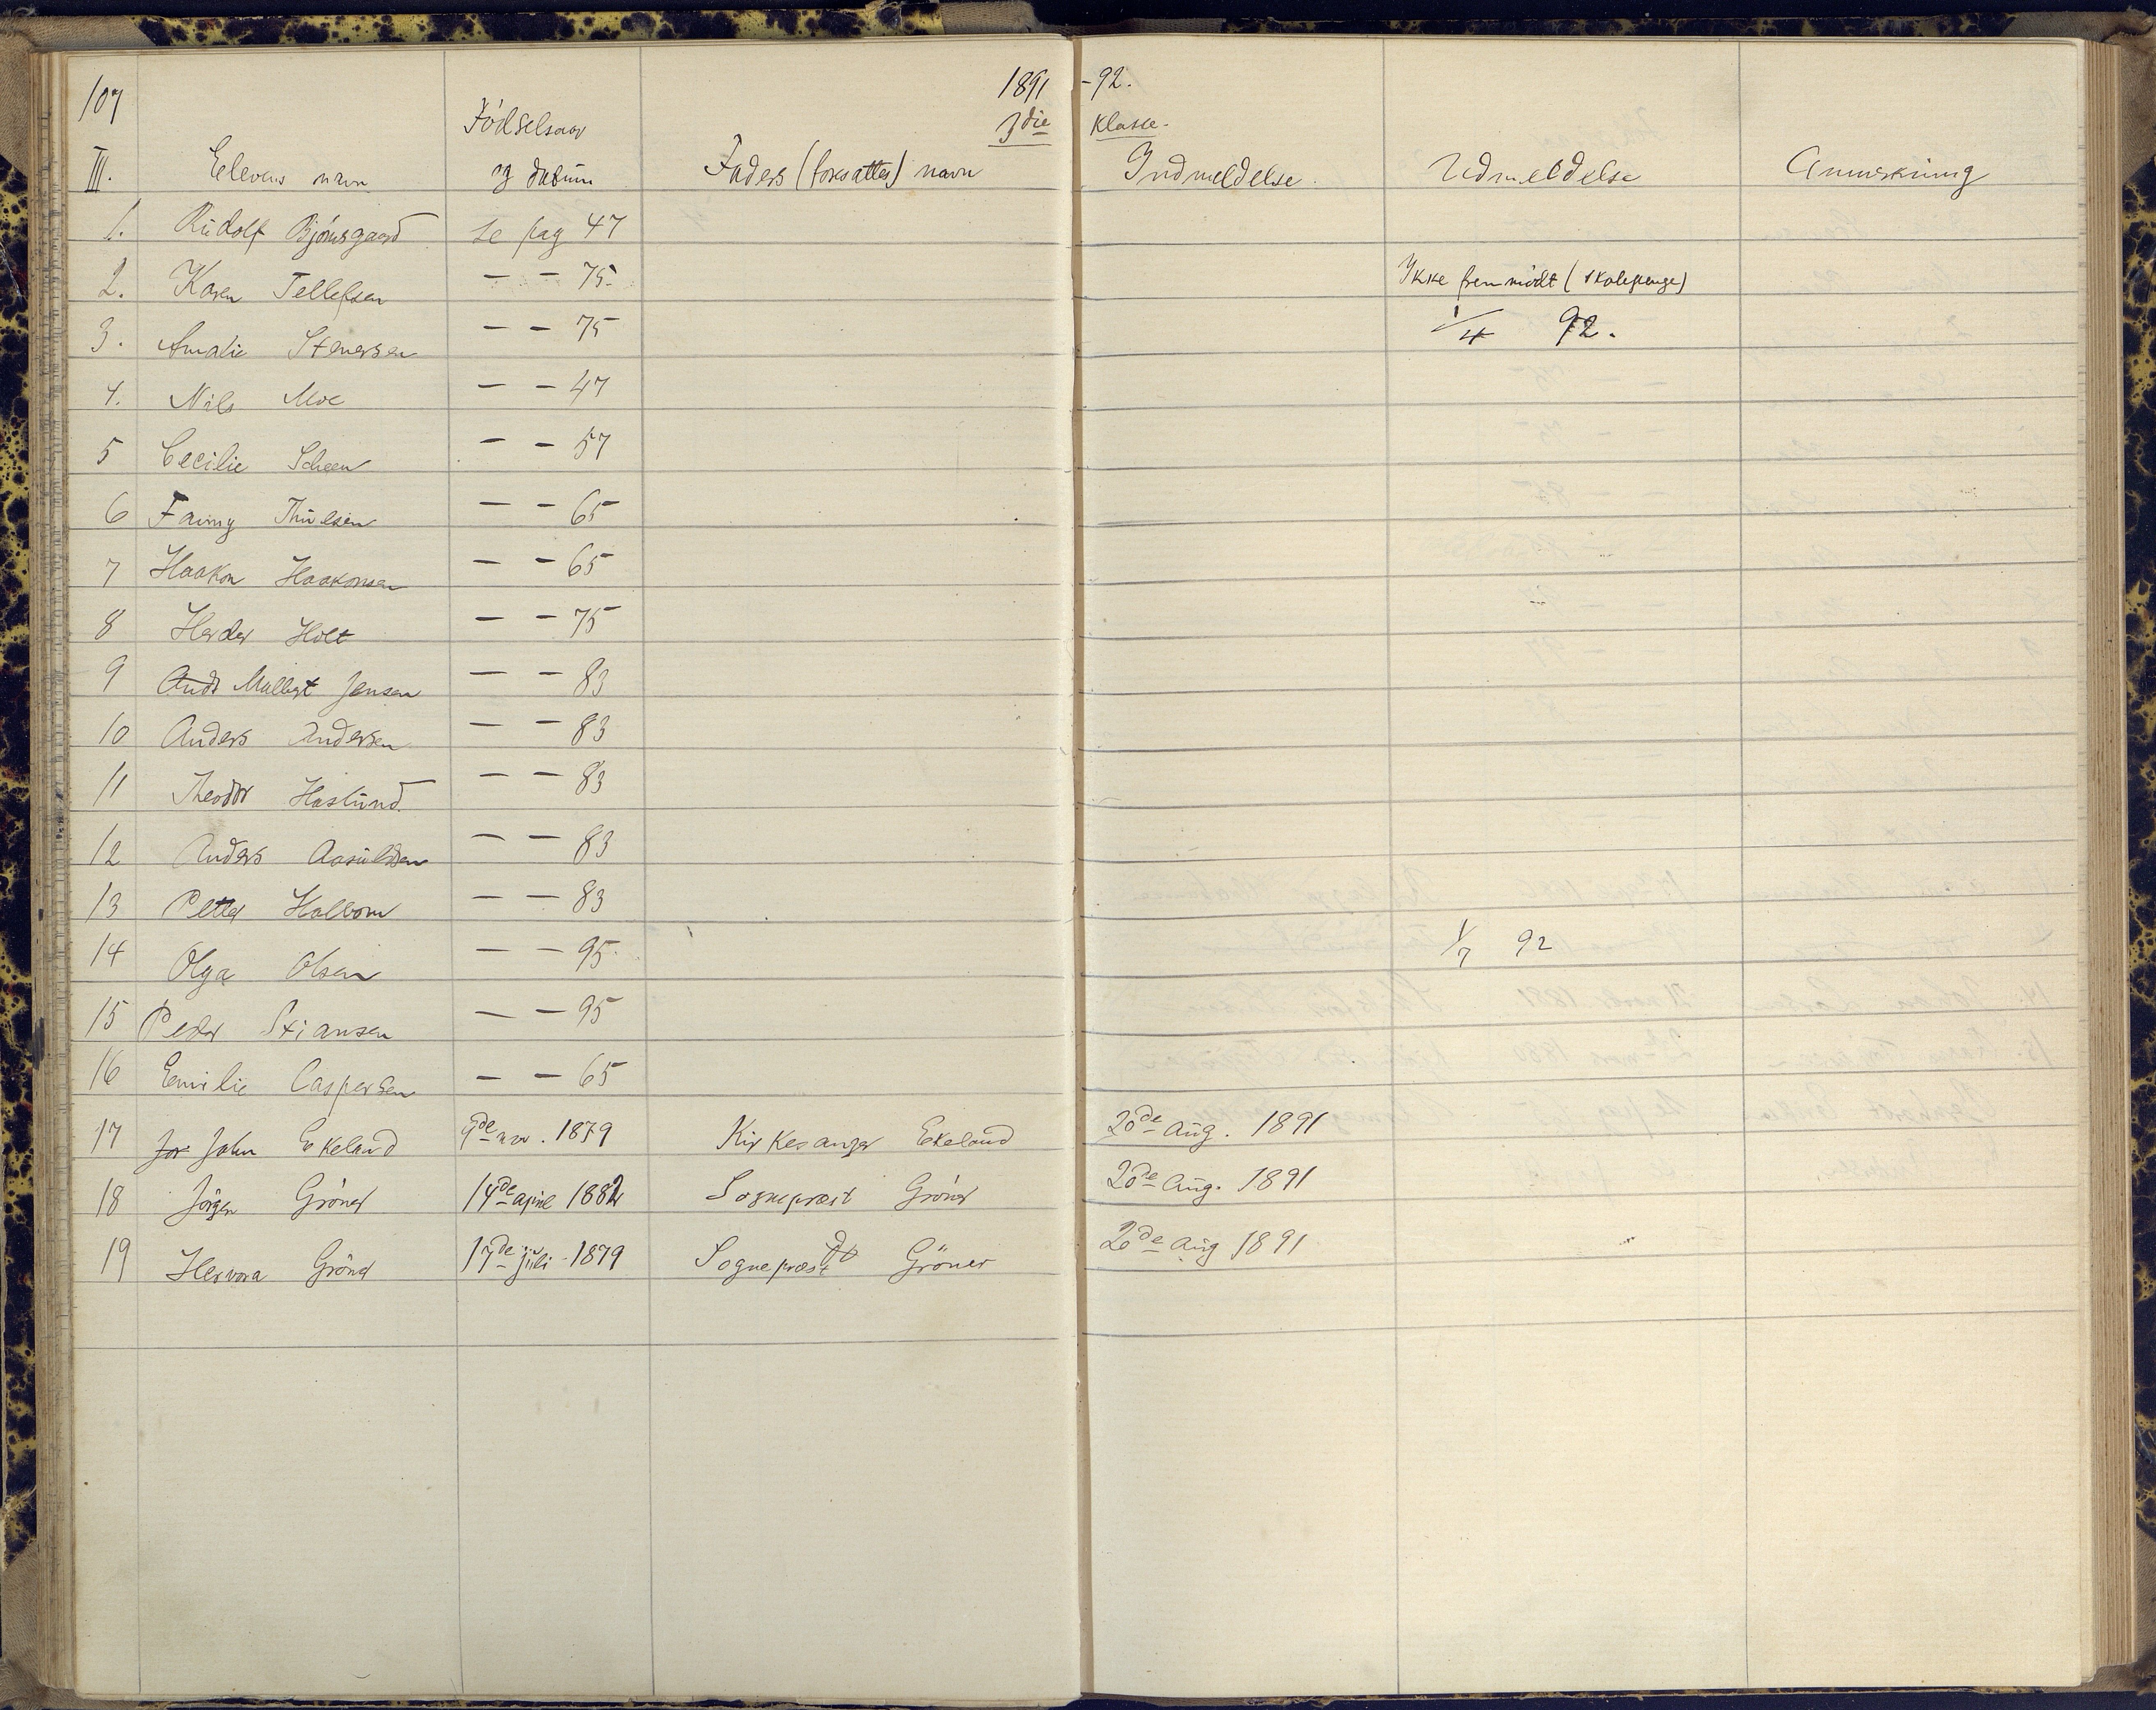 107 1891 - 92.
Fødselsaar 3die Klasse.
III. Elevens navn og datum Faders (foresattes) navn Indmeldelse Udmeldelse Anmerkning
1. Rudolf Bjørnsgaard se pag 47
2. Karen Tellefsen — — 75 Ikke fremmødt (skolepenge)
3. Amalie Stenersen — — 75 1/4 92.
4. Nils Moe — — 47
5 Cecilie Scheen — — 57
6 Fanny — — 65
7 Haakon Haakonsen — — 65
8 Herder Holt — — 75
9 Jensen — — 83
10 Anders Andersen — — 83
11 Theodor Haslund — — 83
12 Anders Aasuldsen — — 83
13 Petter Holborn — — 83
14 Olga Olsen — — 95 1/7 92
15 Peder Stiansen — — 95
16 Emilie Caspersen — — 65
17 John Ekeland nov. 1879 Kirkesanger Ekeland 20de Aug. 1891
18 Jørgen Grøner 14de april 1882 Sogneprest Grøner 20de Aug. 1891
19 Hervora Grøner 17de juli 1879 Sogneprest Grøner 20de Aug 1891